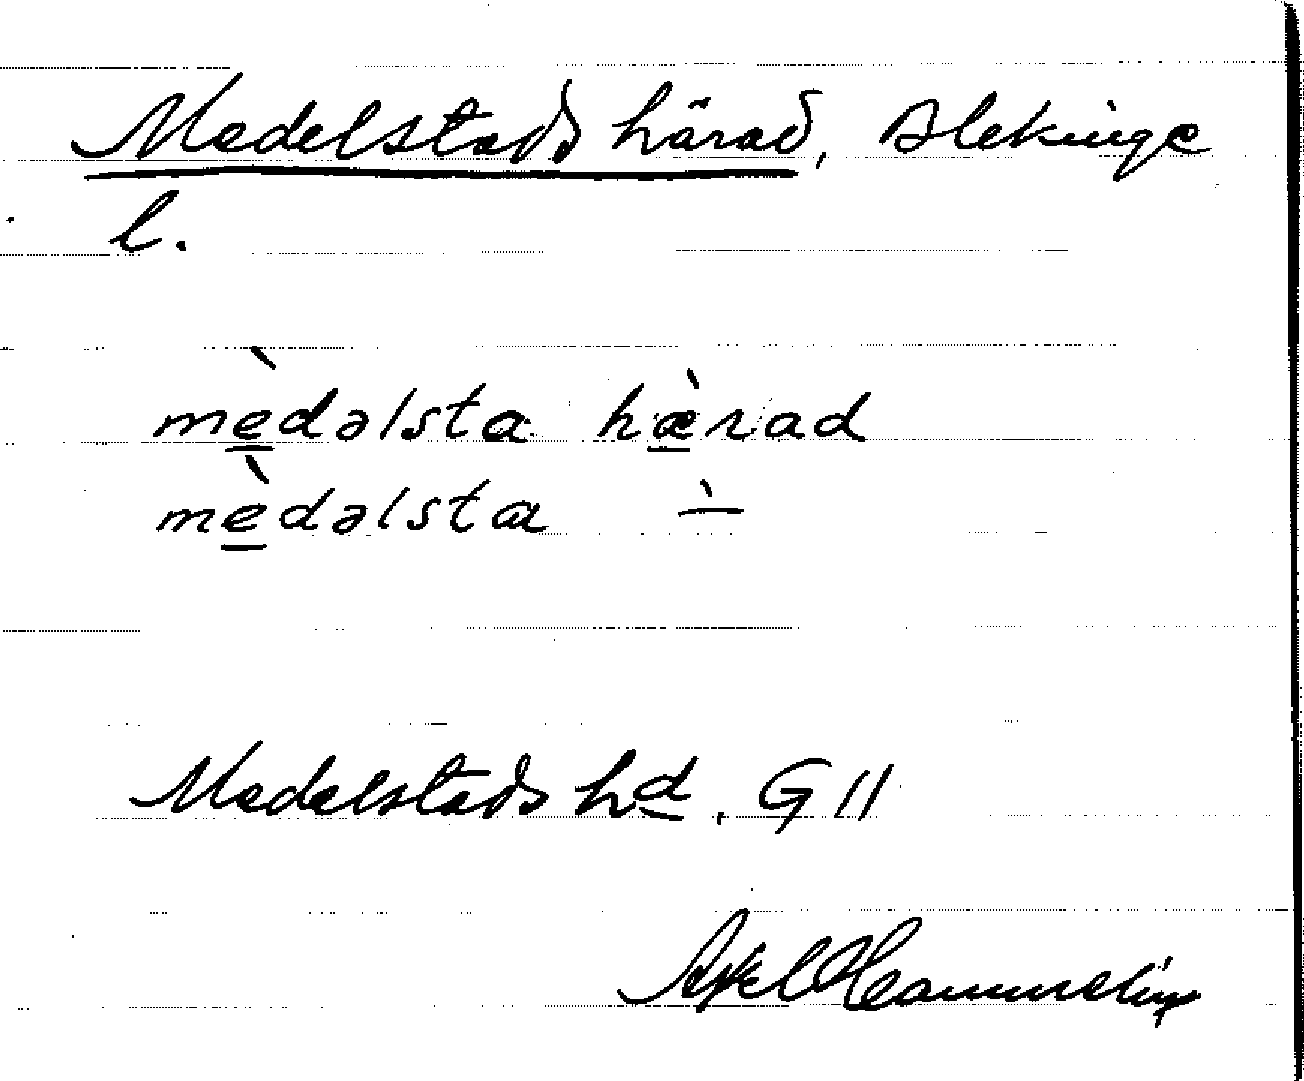 Medelstads härad, Blekinge
l.
mèdəlsta hæ̀rad
mèdəlsta ∸
Medelstads hd. G 11
Axel